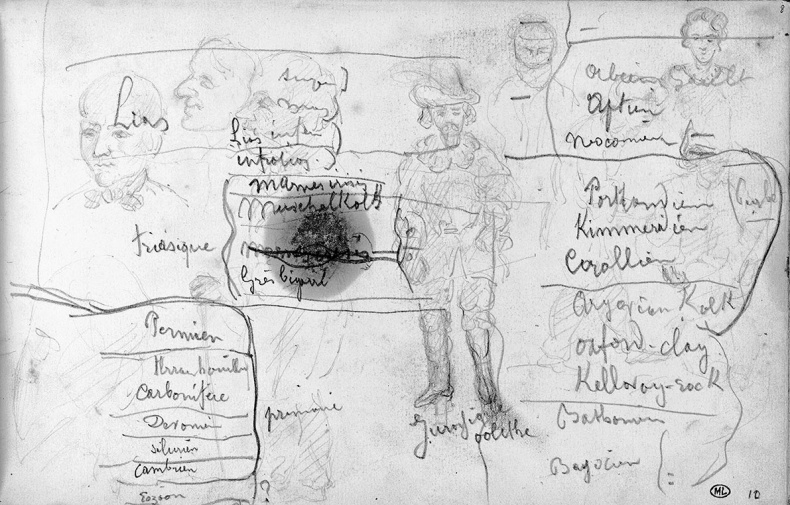 Lias
Lias infra
infralias
marnes irisées
Muschelkalk
triasique
Grès bigarré
Permien
Terrain houiller
Carbonifère
Devonien
silurien
Cambrien
Eozoon
primaire
?
Jurassique
oolithe
Albien Gault
Aptien
neocomien
Portlandien
Kimmeridien
Corallien
Argovien Kalk
oxford-clay
Kelloway-rock
Bathonien
Bajocien
ML
10